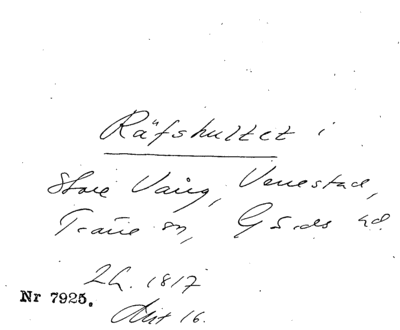 Räfshultet i
Store Vång, Venestad,
Träne sn, Gärds hd.
2h. 1817
Nr 7925.
Akt 16.